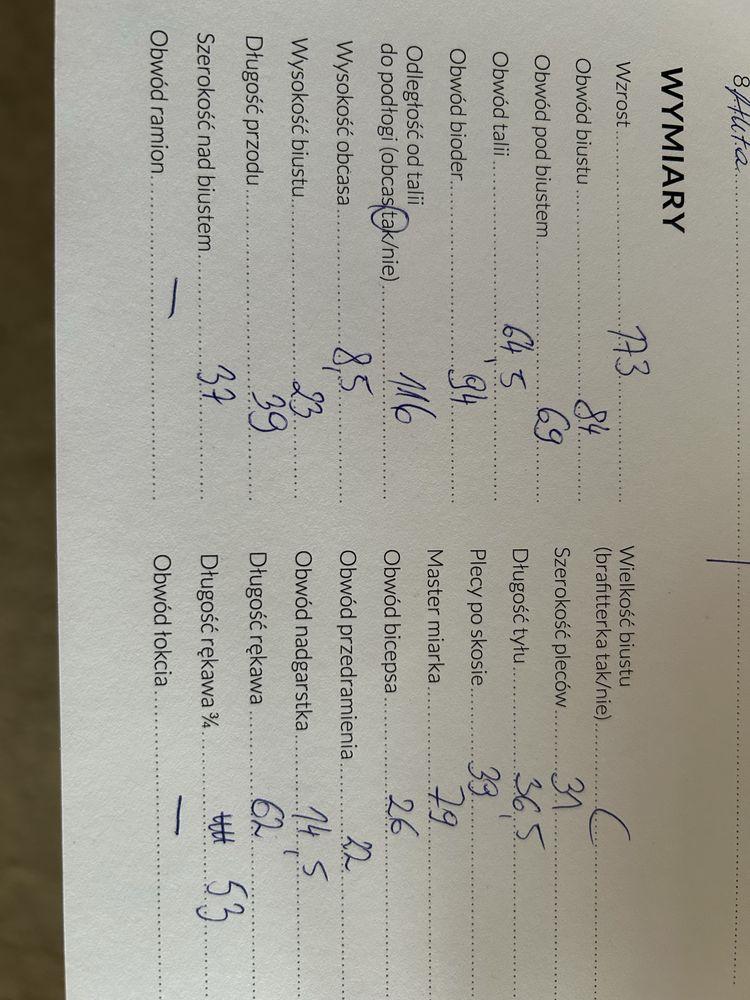 WYMIARY
Wzrost 173
Obwód biustu 84
Obwód pod biustem 69
Obwód talii 64,5
Obwód bioder 94
Odległość od talii
do podłogi (obcas tak/nie) 116
Wysokość obcasa 8,5
Wysokość biustu 23
Długość przodu 39
Szerokość nad biustem 37
Obwód ramion —
Wielkość biustu
(brafitterka tak/nie) C
Szerokość pleców 31
Długość tyłu 36,5
Plecy po skosie 39
Master miarka 79
Obwód bicepsa 26
Obwód przedramienia 22
Obwód nadgarstka 14,5
Długość rękawa 62
Długość rękawa ¾ 53
Obwód łokcia —